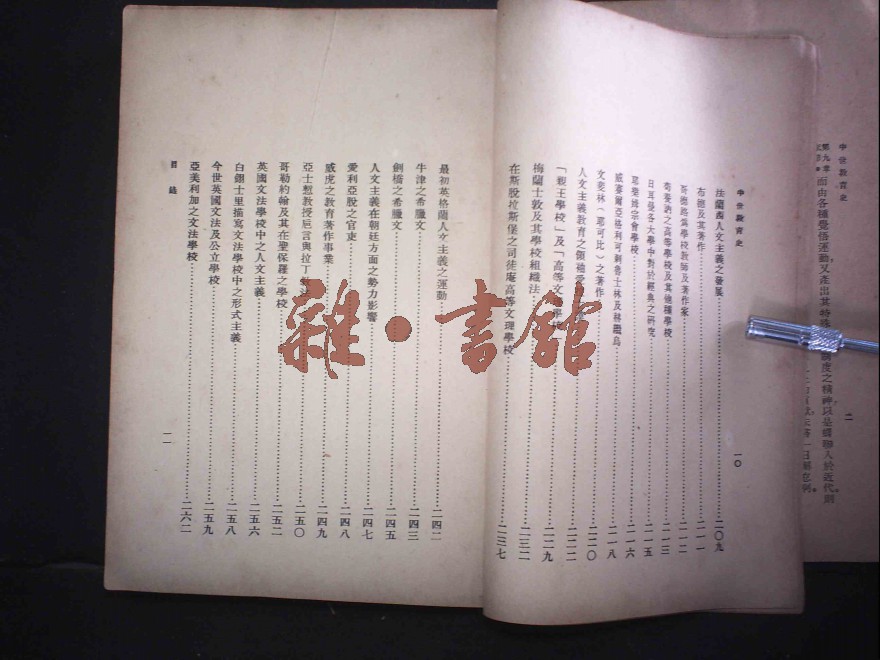 中世教育史
二
第九章
而由各種覺悟運動，又產出其特殊
制度之精神以是蟬聯人於近代則
中世教育史
一〇
法蘭西人文主義之發展……二〇九
布德及其著作……二一一
哥德路氏學校教師及著作家……二一二
之高等學校及其他種學校……二一三
日耳曼各大學中對於經典之研究……二一五
耶槃姆宗會學校……二一六
威賽爾亞格利可剌魯士林及林……二一八
文斐林（耶可比）之著作……二二〇
人文主義教育之領袖愛……二二二
「親王學校」及「高等文理學校……二二九
梅蘭士敦及其學校組織法……二三二
在斯脫拉斯堡之司徒庵高等文理學校……二三七
最初英格蘭人文主義之運動……二四二
牛津之希臘文……二四三
劍橋之希臘文……二四五
人文主義在朝廷方面之勢力影響……二四七
愛利亞脫之官吏……二四八
威虎之教育著作事業……二四九
亞士慙教授巵言與拉丁……二五〇
哥勒約翰及其在聖保羅之學校……二五二
英國文法學校中之人文主義……二五六
白銀士里描寫文法學校中之形式主義……二五八
今世英國文法及公立學校……二五九
亞美利加之文法學校……二六二
目錄
一一
雜·書館